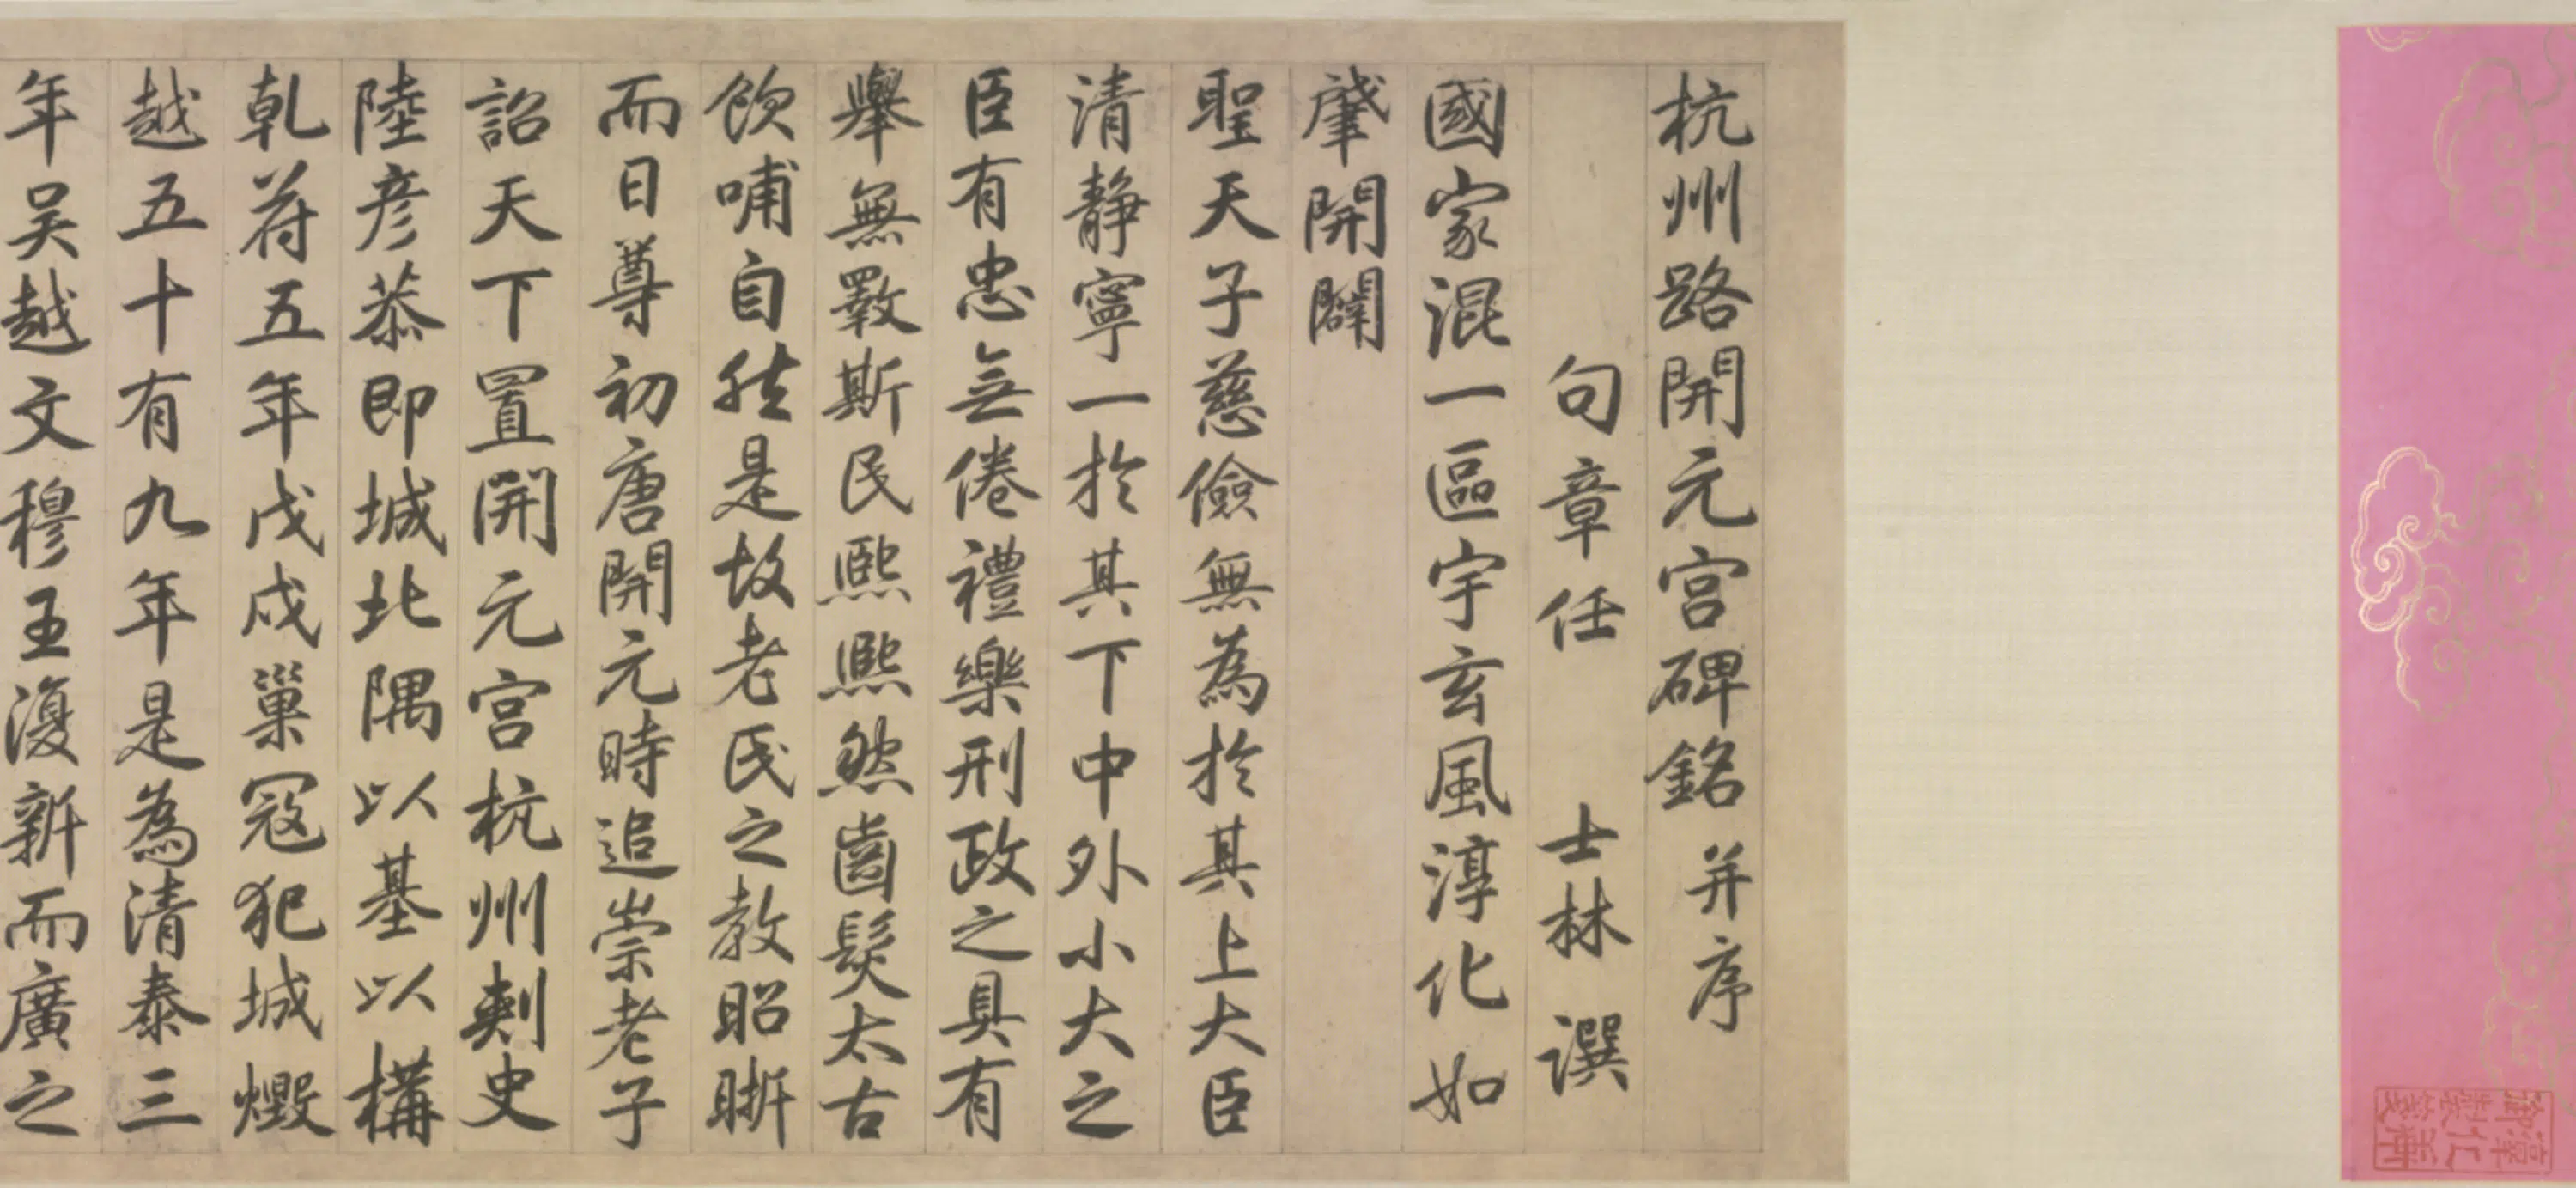 杭州路開元宮碑銘并序
句章任士林譔
國家混一區宇玄風淳化如
肇開闢
聖天子慈儉無為於其上大臣
清静寧一於其下中外小大之
臣有忠無倦禮樂刑政之具有
舉無斁斯民熙熙然齒髮太古
飲哺自然是故老氏之教昭晣
而日尊初唐開元時追崇老子
詔天下置開元宮杭州刺史
陸彦恭即城北隅以基以構
乾符五年戊戌巢寇犯城燬
越五十有九年是為清泰三
年吴越文穆王復新而廣之